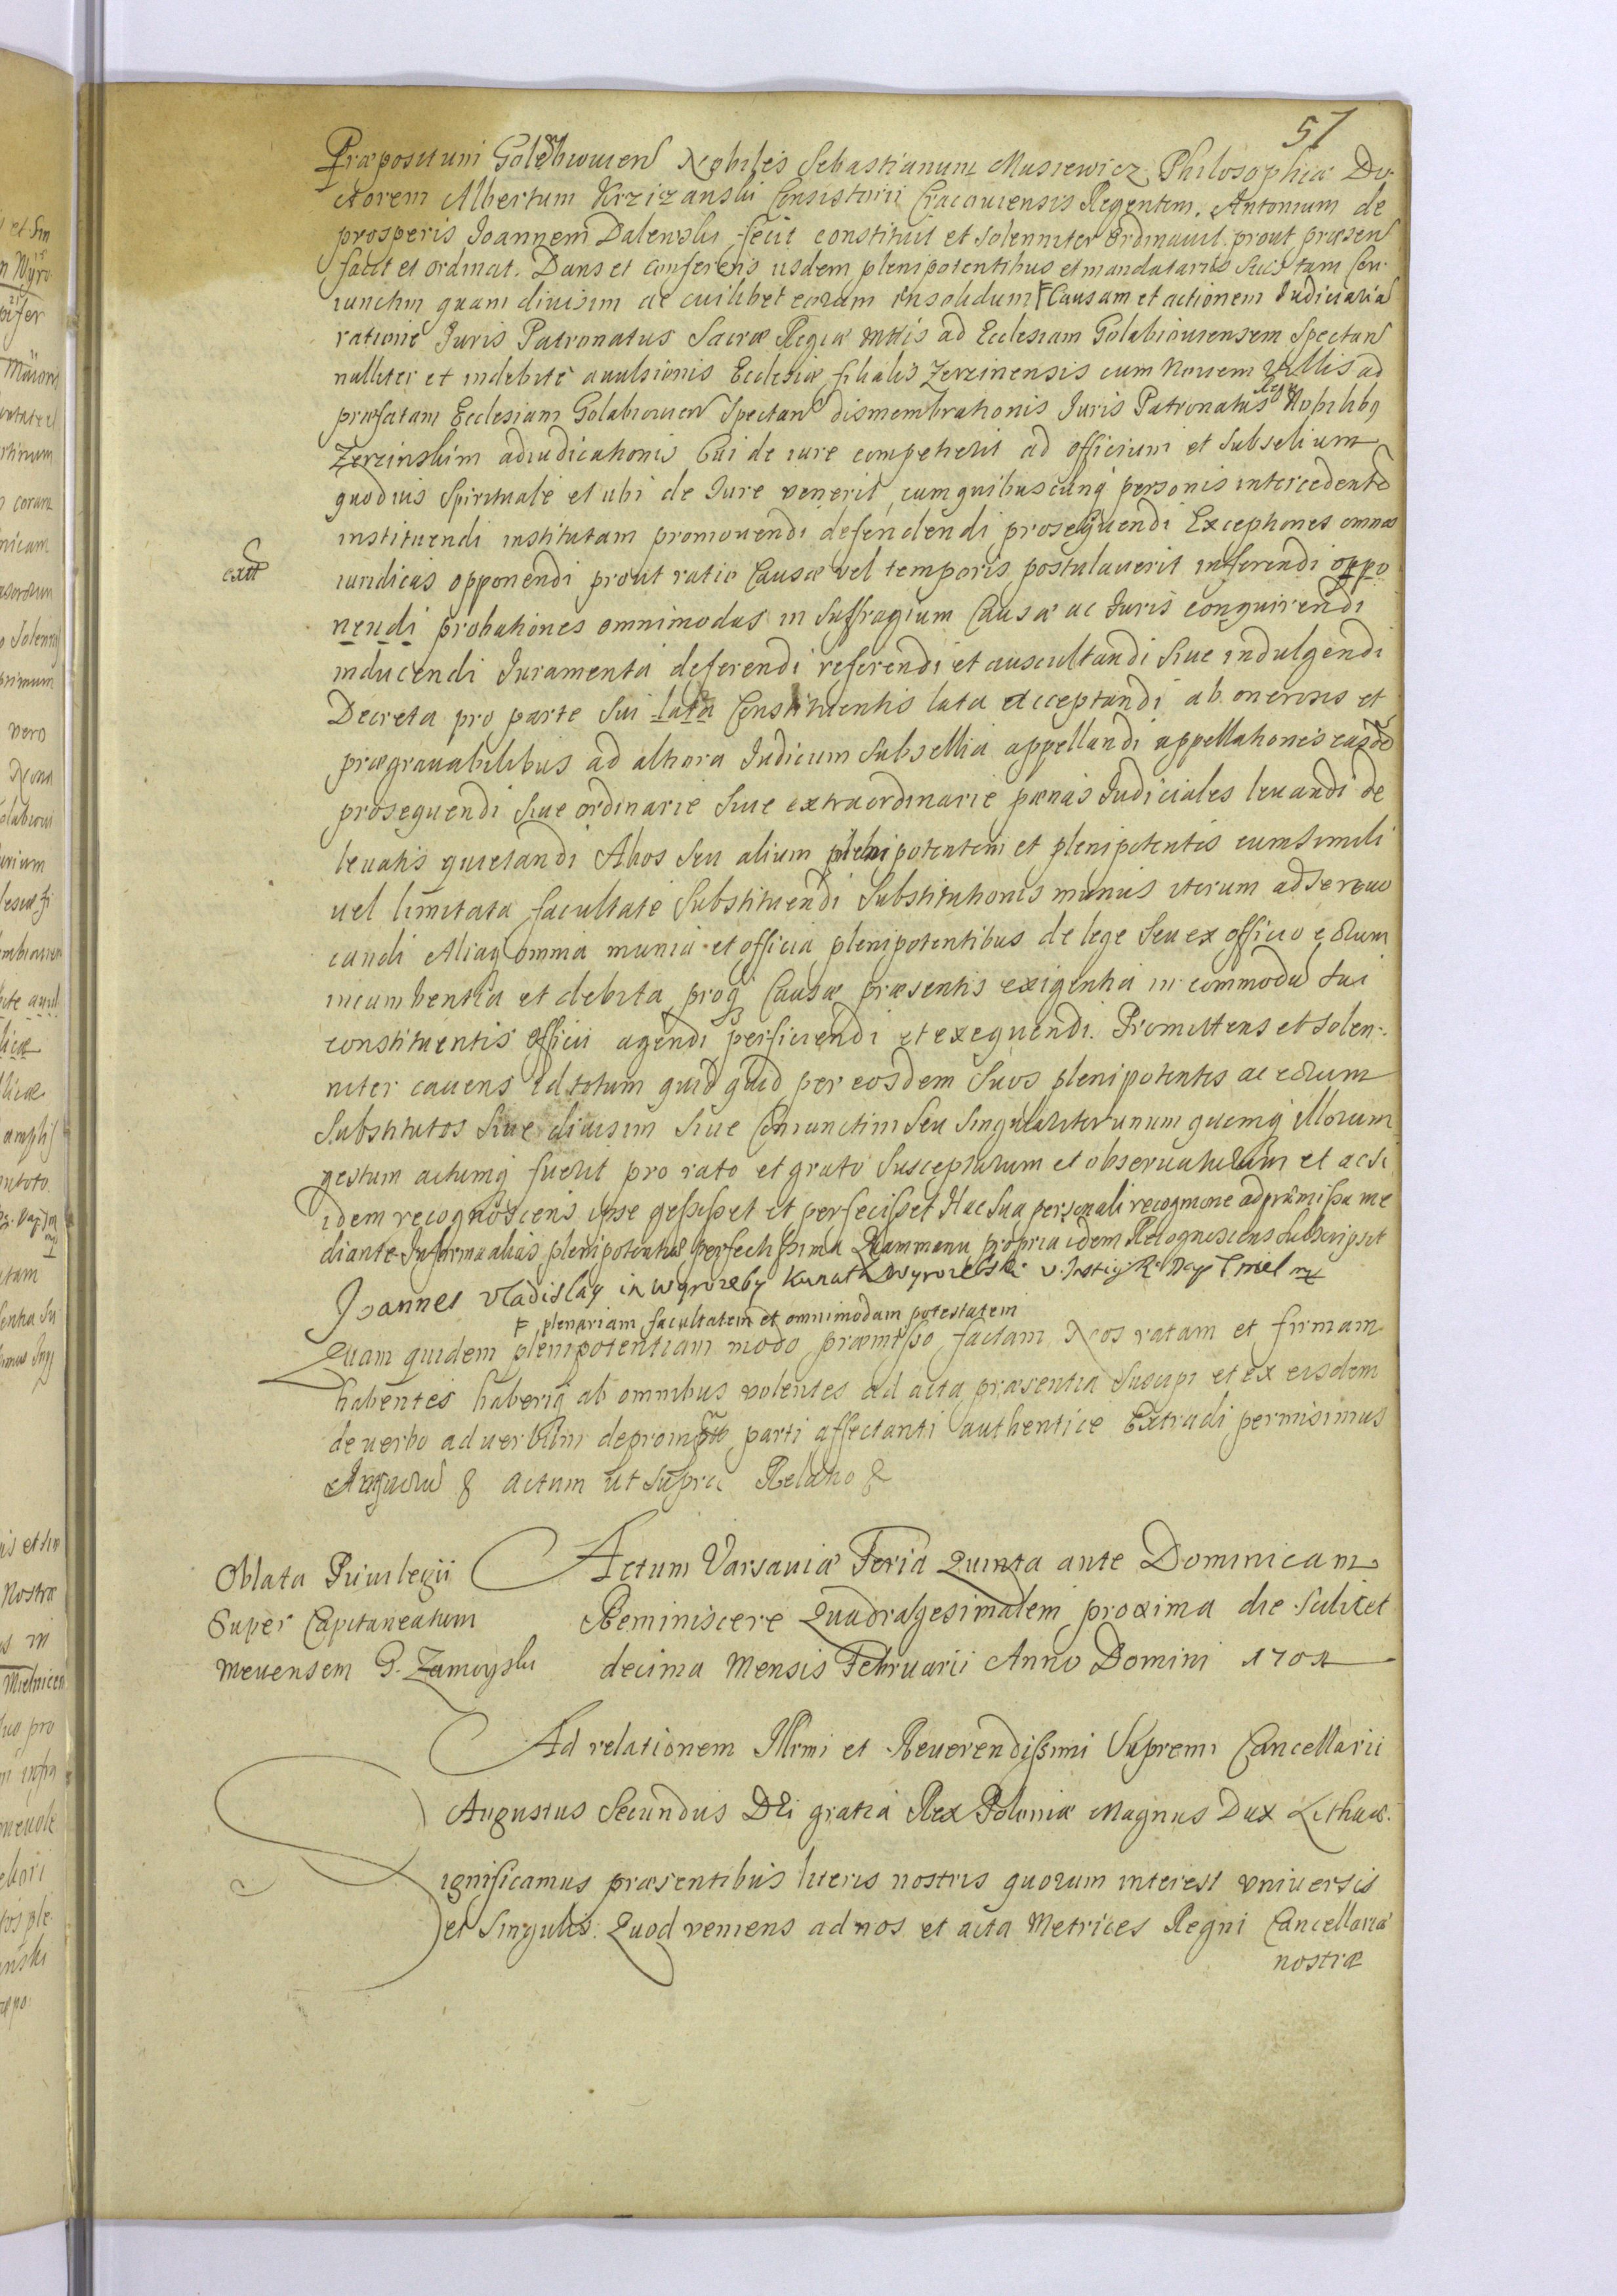 57
Præpositum Golębiouien Nobiles Sebastianum Musiewicz Philosophiæ Do-
ctorem Albertum Krzizanski Consistorii Cracouiensis Regentem. Antonium de
prosperis Joannem Dalewski fecit constituit et solenniter ordinauit prout præsen
facit et ordinat. Dans et conferens iisdem plenipotentibus et mandatariis suis tam con-
iunctim quam diuisim ac cuilibet eorum insolidum Causam et actionem Iudiciaria
ratione Iuris Patronatus Sacræ Regiæ Mttis ad Ecclesiam Golabiouiensem Spectan
nulliter et indebite auulsionis Ecclesiæ filialis Zerzinensis cum Nouem Villis ad
præfatam Ecclesiam Golabiouien Spectan dismembrationis Iuris Patronatus Regii Nobilibq
Zerzinskim adiudicationis Cui de iure competierit ad officium et Subselium
quoduis Spirituale et ubi de Iure venerit cum quibuscunq personis intercedente
instituendi institutam promouendi defendendi prosequendi Exceptiones omnes
iuridicas opponendi prout ratio Causæ vel temporis postulauerit inferendi oppo
nendi probationes omnimodas in Suffragium Causæ ac Iuris conquirendi
inducendi Iuramenta deferendi referendi et auscultandi siue indulgendi
Decreta pro parte Sui lata Constituentis lata acceptandi ab onerosis et
prægrauabilibus ad altiora Iudicium Subsellia appellandi appellationes easde
prosequendi siue ordinarie siue extraordinarie pænas Iudiciales leuandi de
leuatis quietandi Alios seu alium plenipotentem et plenipotentes cum simili
uel limitata facultate Substituendi Substitutionis munus iterum ad se reuo
candi Aliaq omnia munia et officia plenipotentibus de lege Seu ex officio eorum
incumbentia et debita proq Causæ præsentis exigentia in commodu sui
constituentis officii agendi perficiendi et exequendi. Promittens et solen-
niter cauens Id totum quid quid per eosdem Suos plenipotentes ac eorum
Substitutos siue diuisim siue Coniunctim seu Singulariter unum quemq illorum
gestum actumq fuerit pro rato et grato Suscepturum et obseruaturum et acsi
idem recognoscens ipse geßißet et perfecißet Hac Sua personali recognitione ad præmißa me
diante In forma alias plenipotentiæ perfectißima Quam manu propria idem Recognoscens subscripsit
Joannes Vladislaq in Wyrozeby Kunath Wyrozebski V. Instig. R.
plenariam facultatem et omnimodam potestatem
Quam quidem plenipotentiam modo præmißo factam Nos ratam et firmam
habentes haberiq ab omnibus volentes ad acta præsentia Suscipi et ex eisdem
de uerbo ad uerbum depromptã parti affectanti authentice Extradi permisimus
& actum ut supra Relatio &
Oblata Priuilegii
Super Capitaneatum
Meuensem G. Zamoyski
Actum Varsauiæ Feria Quinta ante Dominicam
Reminiscere Quadragesimalem proxima die scilicet
decima Mensis Februarii Anno Domini 1701
Ad relationem Illrmi et Reuerendißimi Supremi Cancellarii
Augustus Secundus DEi gratia Rex Poloniæ Magnus Dux Lithuæ.
Significamus præsentibus literis nostris quorum interest vniuersis
et Singulis. Quod veniens ad nos et acta Metrices Regni Cancellariæ
nostræ